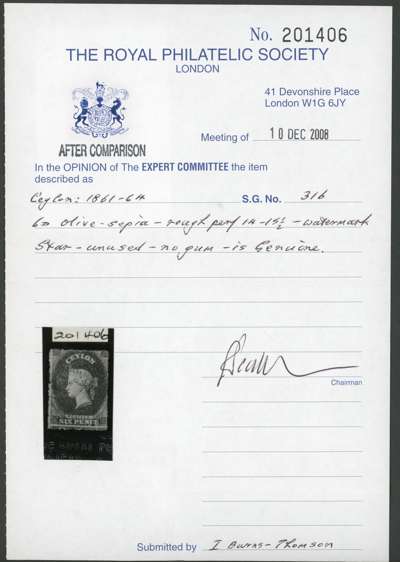 No. 201406
THE ROYAL PHILATELIC SOCIETY
LONDON
41 Devonshire Place
London W1G 6JY
Meeting of 10 DEC 2008
AFTER COMPARISON
In the OPINION of The EXPERT COMMITTEE the item
described as
Ceylon: 1861-64 S.G. No. 31b
6d Olive-sepia - rough perf 14-15½ - watermark
Star - unused - no gum - is Genuine.
201406
CEYLON
SIX PENCE
Chairman
Submitted by I Burns-Thomson